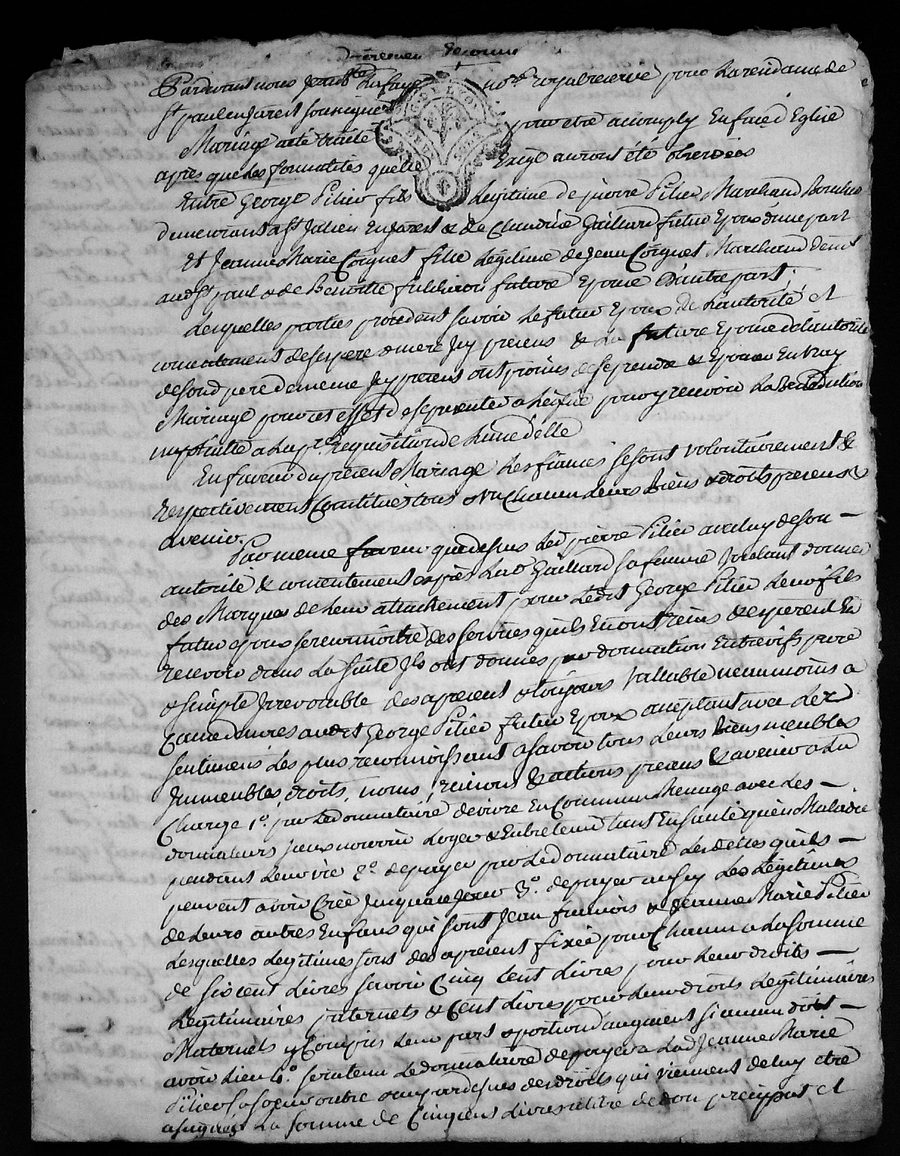 Pardevant nous Jean Bte Dufay nore royal reservé pour la residance de
St paul en Jarest soussigné
Mariage a été traité pour etre accomply En face d Eglise
apres que les formalités quelle Exige auront été observees
Entre George Pilieu fils Legitime de pierre Pilieu Marchand
demeurant a St Julien En Jarest & de Claudine Gaillard futur Epoux d'une part
Et Jeanne Marie Coignet fille Legitime de Jean Coignet Marchand demt
aud St paul & de Benoitte fulchiron future Epouse D'autre part.
Lesquelles parties procedant savoir Le futur Epoux de L'autorité et
consentement de ses pere & mere Jcy presens & La future Epouse de L'autorité
de sond pere de meme Jcy present ont promis de se prendre & Epouser En vray
Mariage pour cet effet de se presenter a L'eglise pour y recevoir La Benediction
nuptialle a La pre requisition de L'une d'elle
En faveur du present Mariage Les fiancés se sont volontairement &
respectivement Constitues tous & un Chacun Leurs Biens & droits presens &
avenir.
Par meme faveur que dessus Led pierre Pilieu avec Lad de son
autorité & consentement Gaillard sa femme voulant donner
des Marques de Leur attachement pour Ledit George Pilieu Leur fils
futur epoux se reconnoitre des services qu'ils En ont reçus & esperent En
recevoir dans La suite Jls ont donnés par donnation Entrevifs pure
& simple Jrrevocable des apresent & toujours vallable neanmoins a
Cause de noces audit George Pilieu futur Epoux acceptant avec des
sentimens des plus reconnoissant a savoir tous Leurs biens meubles
Jmmeubles, droits, noms, raisons & actions presens & avenir a La
Charge 1o. par Le donnataire de vivre En Commun Menage avec Les
donnateurs Jceux nourrir Loger & Entretenir tant En santé qu'en Maladie
pendant Leur vie 2o. de payer par Le donnataire Les dettes qu'ils
peuvent avoir Créé Jusqu'a ce Jour 3o. de payer aussy Les Legitimes
de Leurs autres Enfans qui sont Jean françois & Jeanne Marie Pilieu
Lesquelles Legitimes sont des apresent fixée pour Chacun a La somme
de six cent Livres savoir Cinq Cent Livres pour Leur droits
Legitimaires paternels & Cent Livres pour Leur droits Legitimaires
Maternels y Compris Leur part & portion d'augment si aucun doit
avoir Lieu 4o. sera tenu Le donnataire de payer a Lad Jeanne Marie
Pilieu sa soeur outre & pardessus des droits qui viennent de Luy etre
assignes La somme de Cinq cens Livres a titre de don preciput et